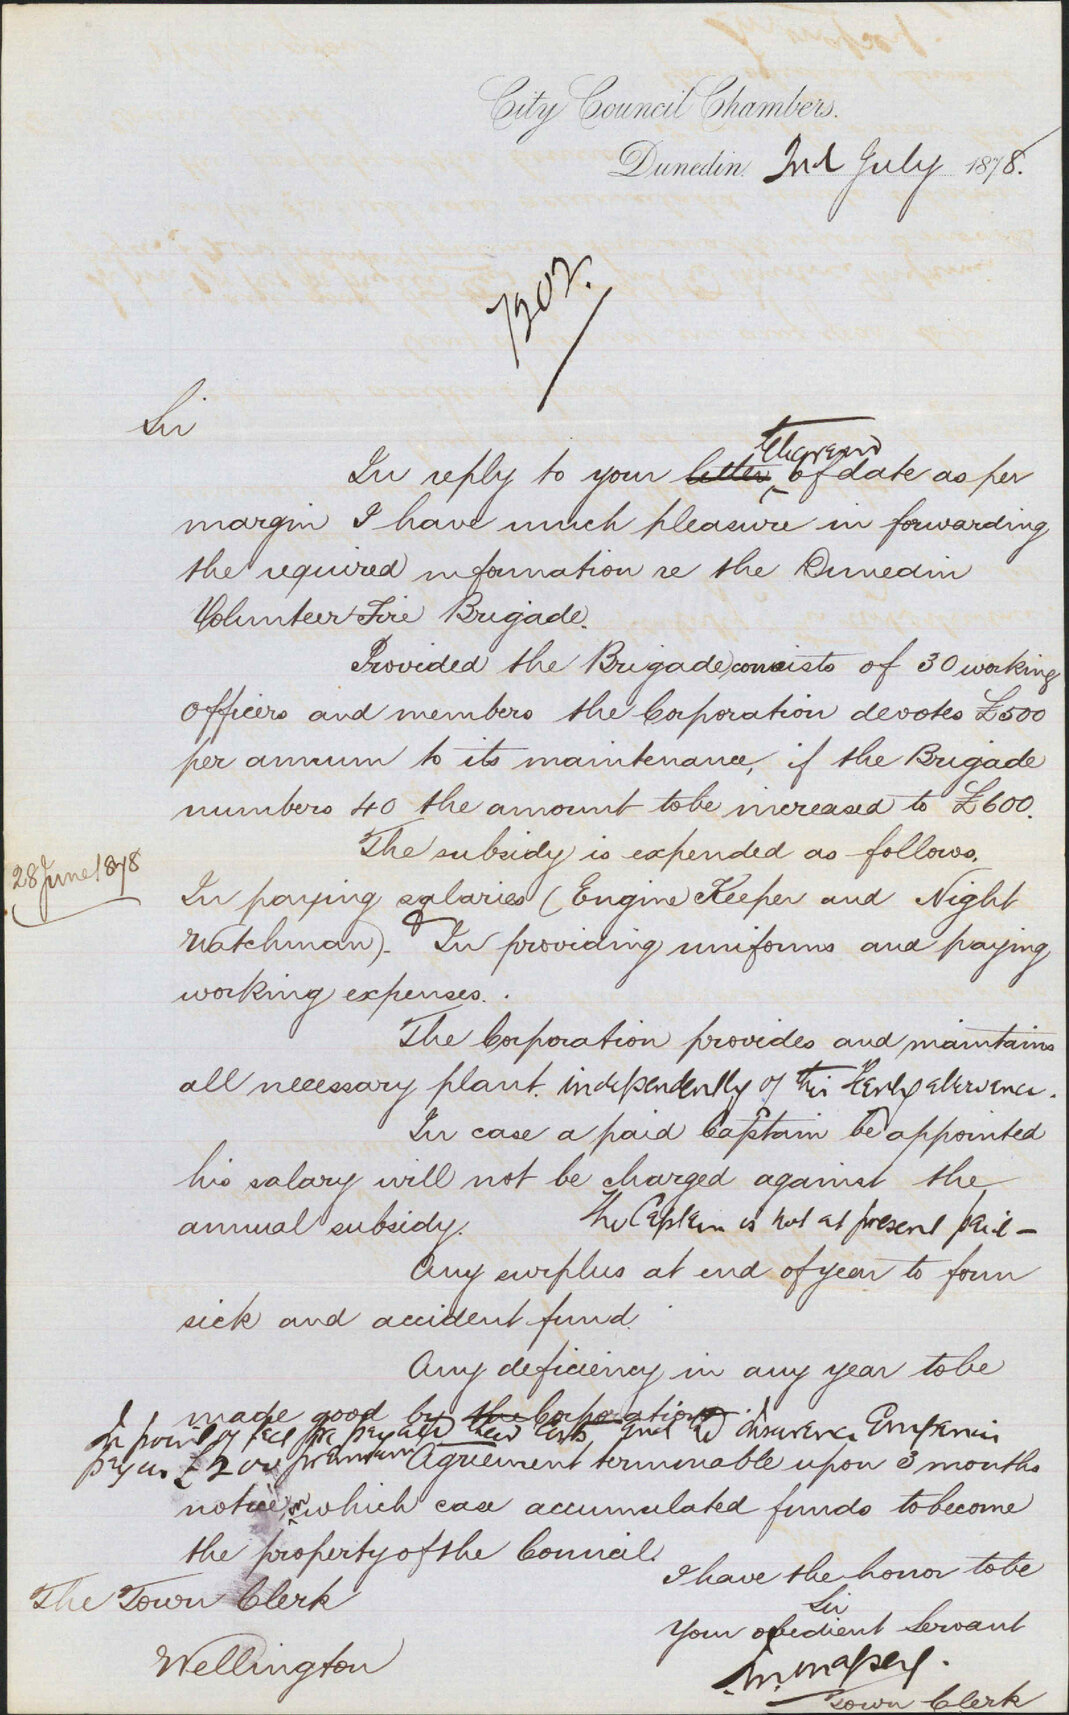 City Council Chambers.
Dunedin. 2nd July 1878.
1202.
Sir
In reply to your letter, telegram of date as per
margin I have much pleasure in forwarding
the required information re the Dunedin
Volunteer Fire Brigade.
Provided the Brigade consists of 30 working
officers and members the Corporation devotes £500
per annum to its maintenance, if the Brigade
numbers 40 the amount to be increased to £600.
The subsidy is expended as follows.
28 June 1878
In paying salaries (Engine Keeper and Night
Watchman). In providing uniforms and paying
working expenses.
The Corporation provides and maintains
all necessary plant. independently of this Yearly allowance.
In case a paid Captain be appointed
his salary will not be charged against the
annual subsidy. The Captain is not at present paid -
Any surplus at end of year to form
sick and accident fund.
Any deficiency in any year to be
made good by the Corporation.
In point of fact the and Insurance Companies
pay us £200 premium Agreement terminable upon 3 months
notice, in which case accumulated funds to become
the property of the Council.
I have the honor to be
Sir
Your obedient Servant
Town Clerk
The Town Clerk
Wellington